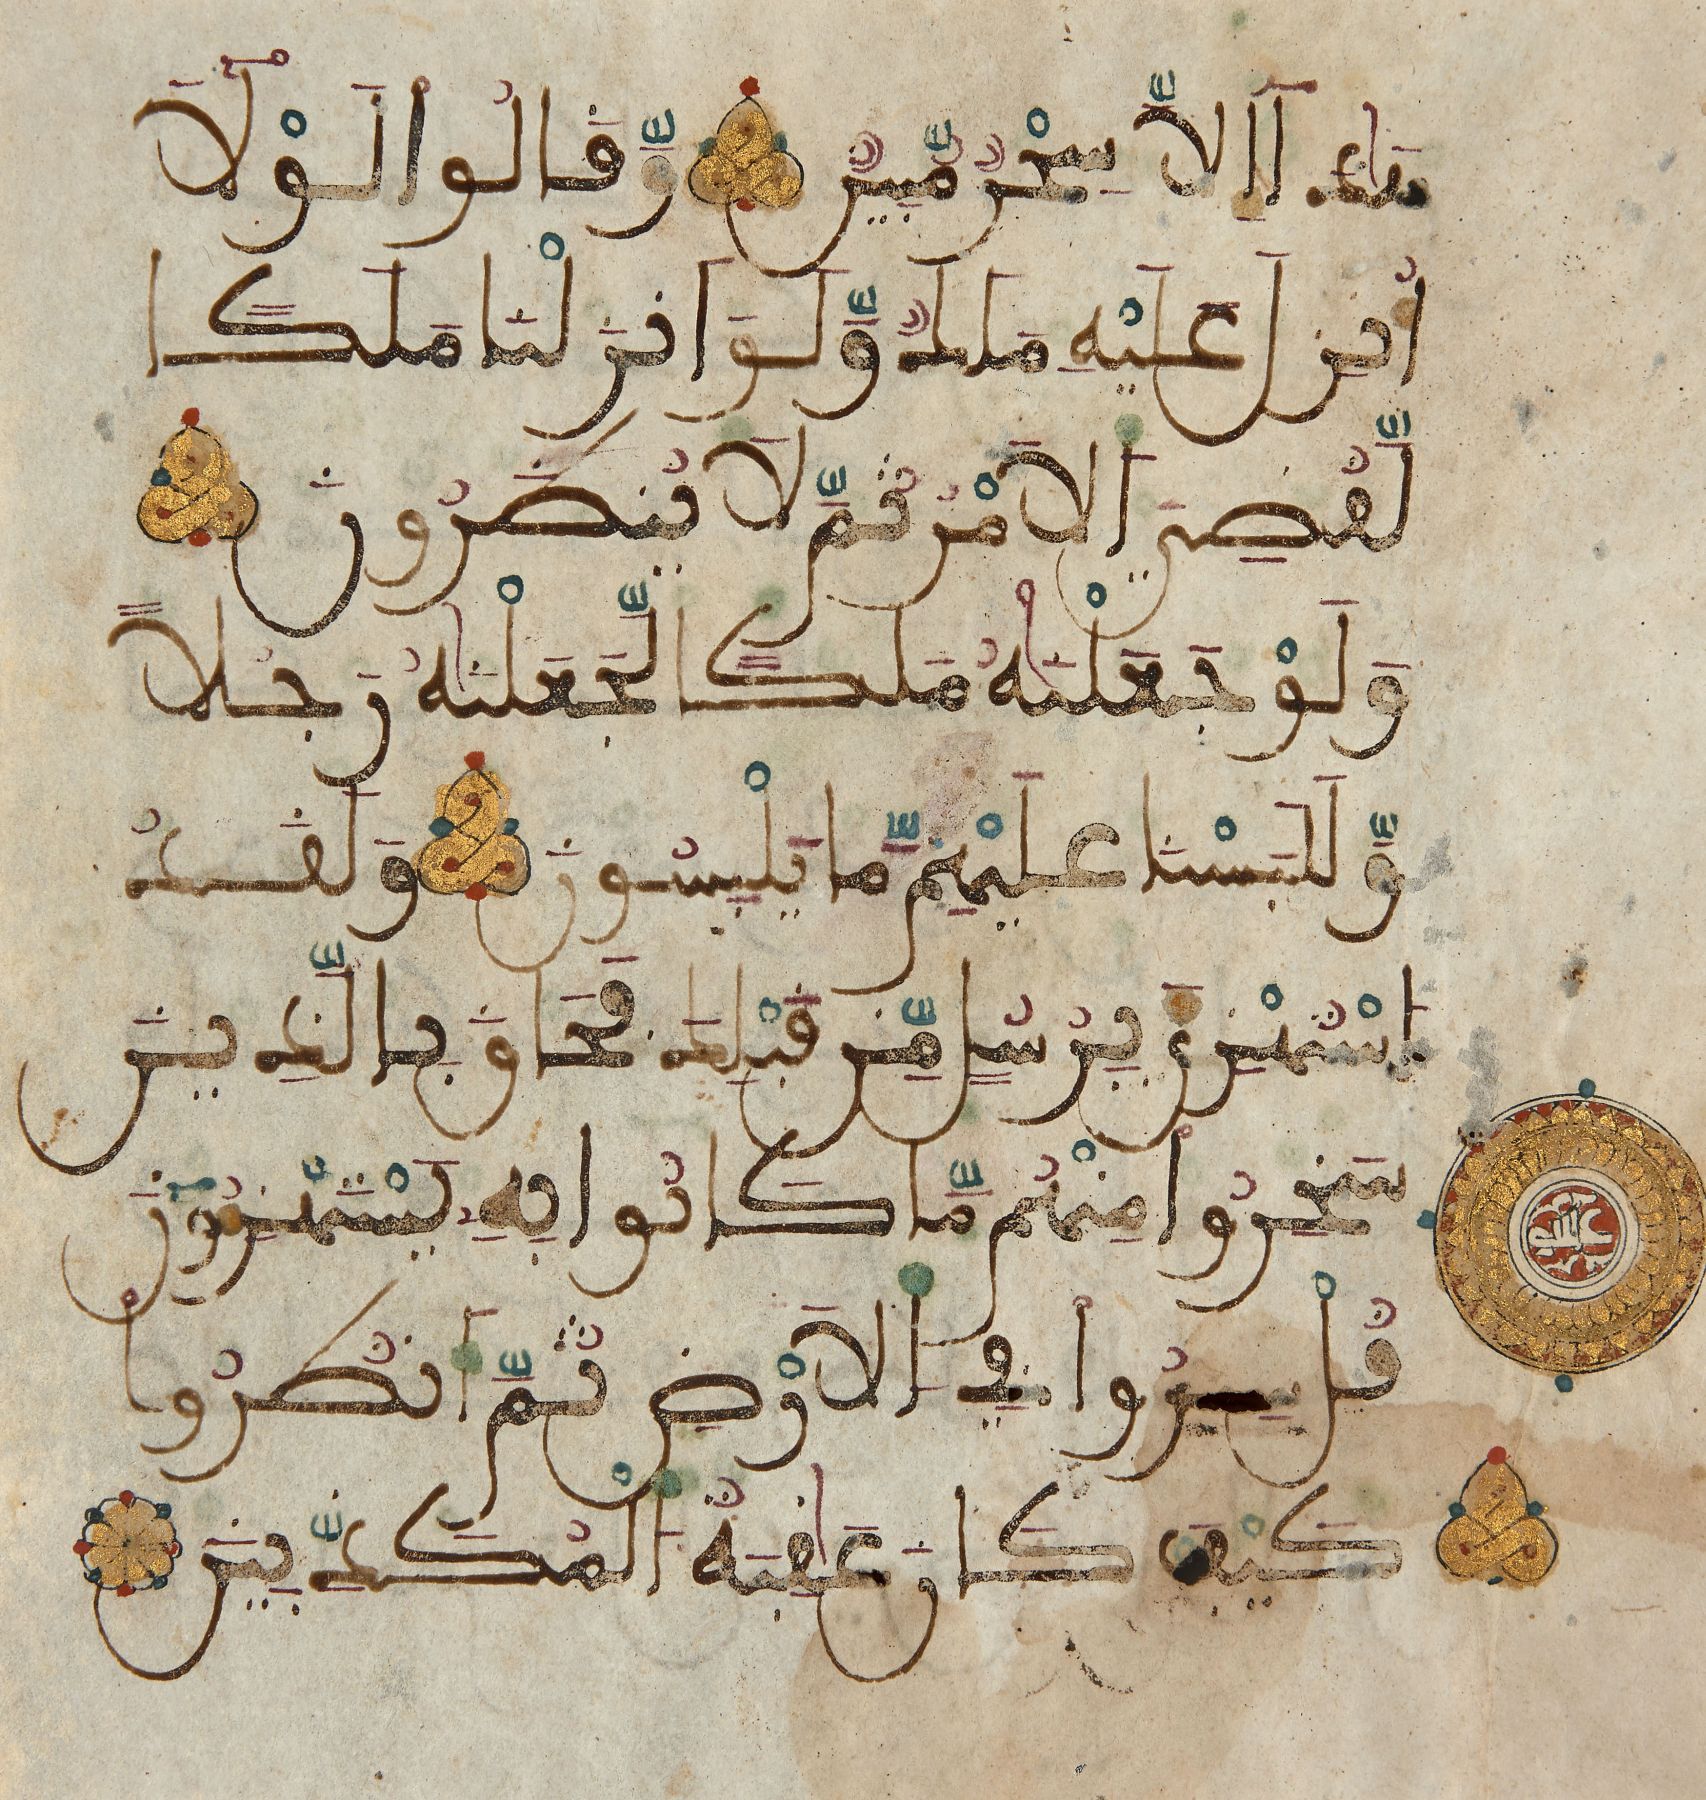 هٰذَا إِلَّا سِحْرٌ مُّبِينٌ وَّقَالُوا لَوْلَا
أُنزِلَ عَلَيْهِ مَلَكٌ وَّلَوَ اَنزَلْنَا مَلَكًا
لَّقُضِيَ اَلَامْرُ ثُمَّ لَا يُنظَرُونَ
وَلَوْ جَعَلْنٰهُ مَلَكًا لَّجَعَلْنٰهُ رَجُلًا
وَّلَلَبَسْنَا عَلَيْهِم مَّا يَلْبِسُونَ وَلَقَدُ
اسْتُهْزِئَ بِرُسُلٍ مِّن قَبْلِكَ فَحَاقَ بِالَّذِينَ
سَخِرُوا مِنْهُم مَّا كَانُوا بِهِ يَسْتَهْزِءُونَ
قُلْ سِيرُوا فِي اَلَارْضِ ثُمَّ اَنظُرُوا
كَيْفَ كَانَ عٰقِبَةُ اَلْمُكَذِّبِينَ